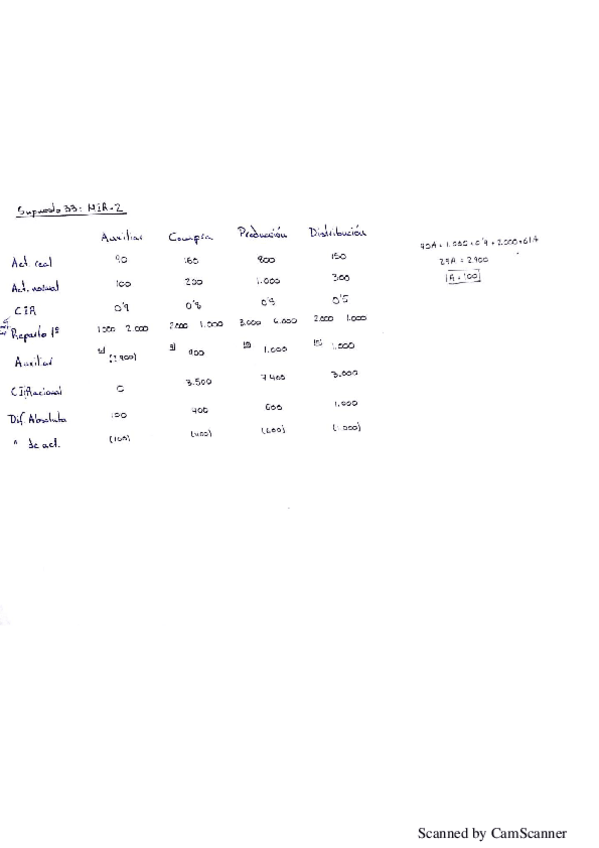 Supuesto 33: MIR-2
Auxiliar Compra Producción Distribución
Act. real 90 160 800 150
Act. normal 100 200 1.000 300
CIR 0'9 0'8 0'5
Reparto 1º 2.000 2.000 1.000 3.000 6.000 2.000 1.000
Auxiliar 1.000 1.000
CI Racional 0 3.500 7400 3.000
Dif. Absoluta 100 400 600 1.000
de act. (100) (400) (600)
29A = 2.900
Scanned by CamScanner